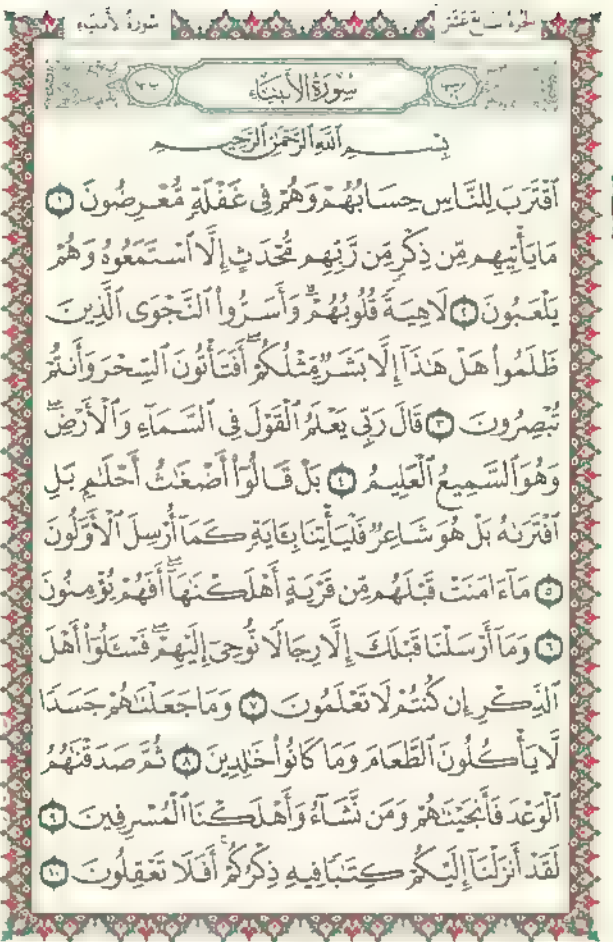 الجزء السابع عشر
سورة الأنبياء
سُورَةُ الأَنبِيَاءِ
بِسْمِ ٱللَّهِ ٱلرَّحْمَٰنِ ٱلرَّحِيمِ
ٱقْتَرَبَ لِلنَّاسِ حِسَابُهُمْ وَهُمْ فِى غَفْلَةٍ مُّعْرِضُونَ ١
مَا يَأْتِيهِم مِّن ذِكْرٍ مِّن رَّبِّهِم مُّحْدَثٍ إِلَّا ٱسْتَمَعُوهُ وَهُمْ
يَلْعَبُونَ ٢ لَاهِيَةً قُلُوبُهُمْ ۗ وَأَسَرُّوا۟ ٱلنَّجْوَى ٱلَّذِينَ
ظَلَمُوا۟ هَلْ هَٰذَآ إِلَّا بَشَرٌ مِّثْلُكُمْ ۖ أَفَتَأْتُونَ ٱلسِّحْرَ وَأَنتُمْ
تُبْصِرُونَ ٣ قَالَ رَبِّى يَعْلَمُ ٱلْقَوْلَ فِى ٱلسَّمَآءِ وَٱلْأَرْضِ ۖ
وَهُوَ ٱلسَّمِيعُ ٱلْعَلِيمُ ٤ بَلْ قَالُوٓا۟ أَضْغَٰثُ أَحْلَٰمٍ بَلِ
ٱفْتَرَىٰهُ بَلْ هُوَ شَاعِرٌ فَلْيَأْتِنَا بِـَٔايَةٍ كَمَآ أُرْسِلَ ٱلْأَوَّلُونَ
٥ مَآ ءَامَنَتْ قَبْلَهُم مِّن قَرْيَةٍ أَهْلَكْنَٰهَآ ۖ أَفَهُمْ يُؤْمِنُونَ
٦ وَمَآ أَرْسَلْنَا قَبْلَكَ إِلَّا رِجَالًا نُّوحِىٓ إِلَيْهِمْ ۖ فَسْـَٔلُوٓا۟ أَهْلَ
ٱلذِّكْرِ إِن كُنتُمْ لَا تَعْلَمُونَ ٧ وَمَا جَعَلْنَٰهُمْ جَسَدًا
لَّا يَأْكُلُونَ ٱلطَّعَامَ وَمَا كَانُوا۟ خَٰلِدِينَ ٨ ثُمَّ صَدَقْنَٰهُمُ
ٱلْوَعْدَ فَأَنجَيْنَٰهُمْ وَمَن نَّشَآءُ وَأَهْلَكْنَا ٱلْمُسْرِفِينَ ٩
لَقَدْ أَنزَلْنَآ إِلَيْكُمْ كِتَٰبًا فِيهِ ذِكْرُكُمْ ۖ أَفَلَا تَعْقِلُونَ ١٠